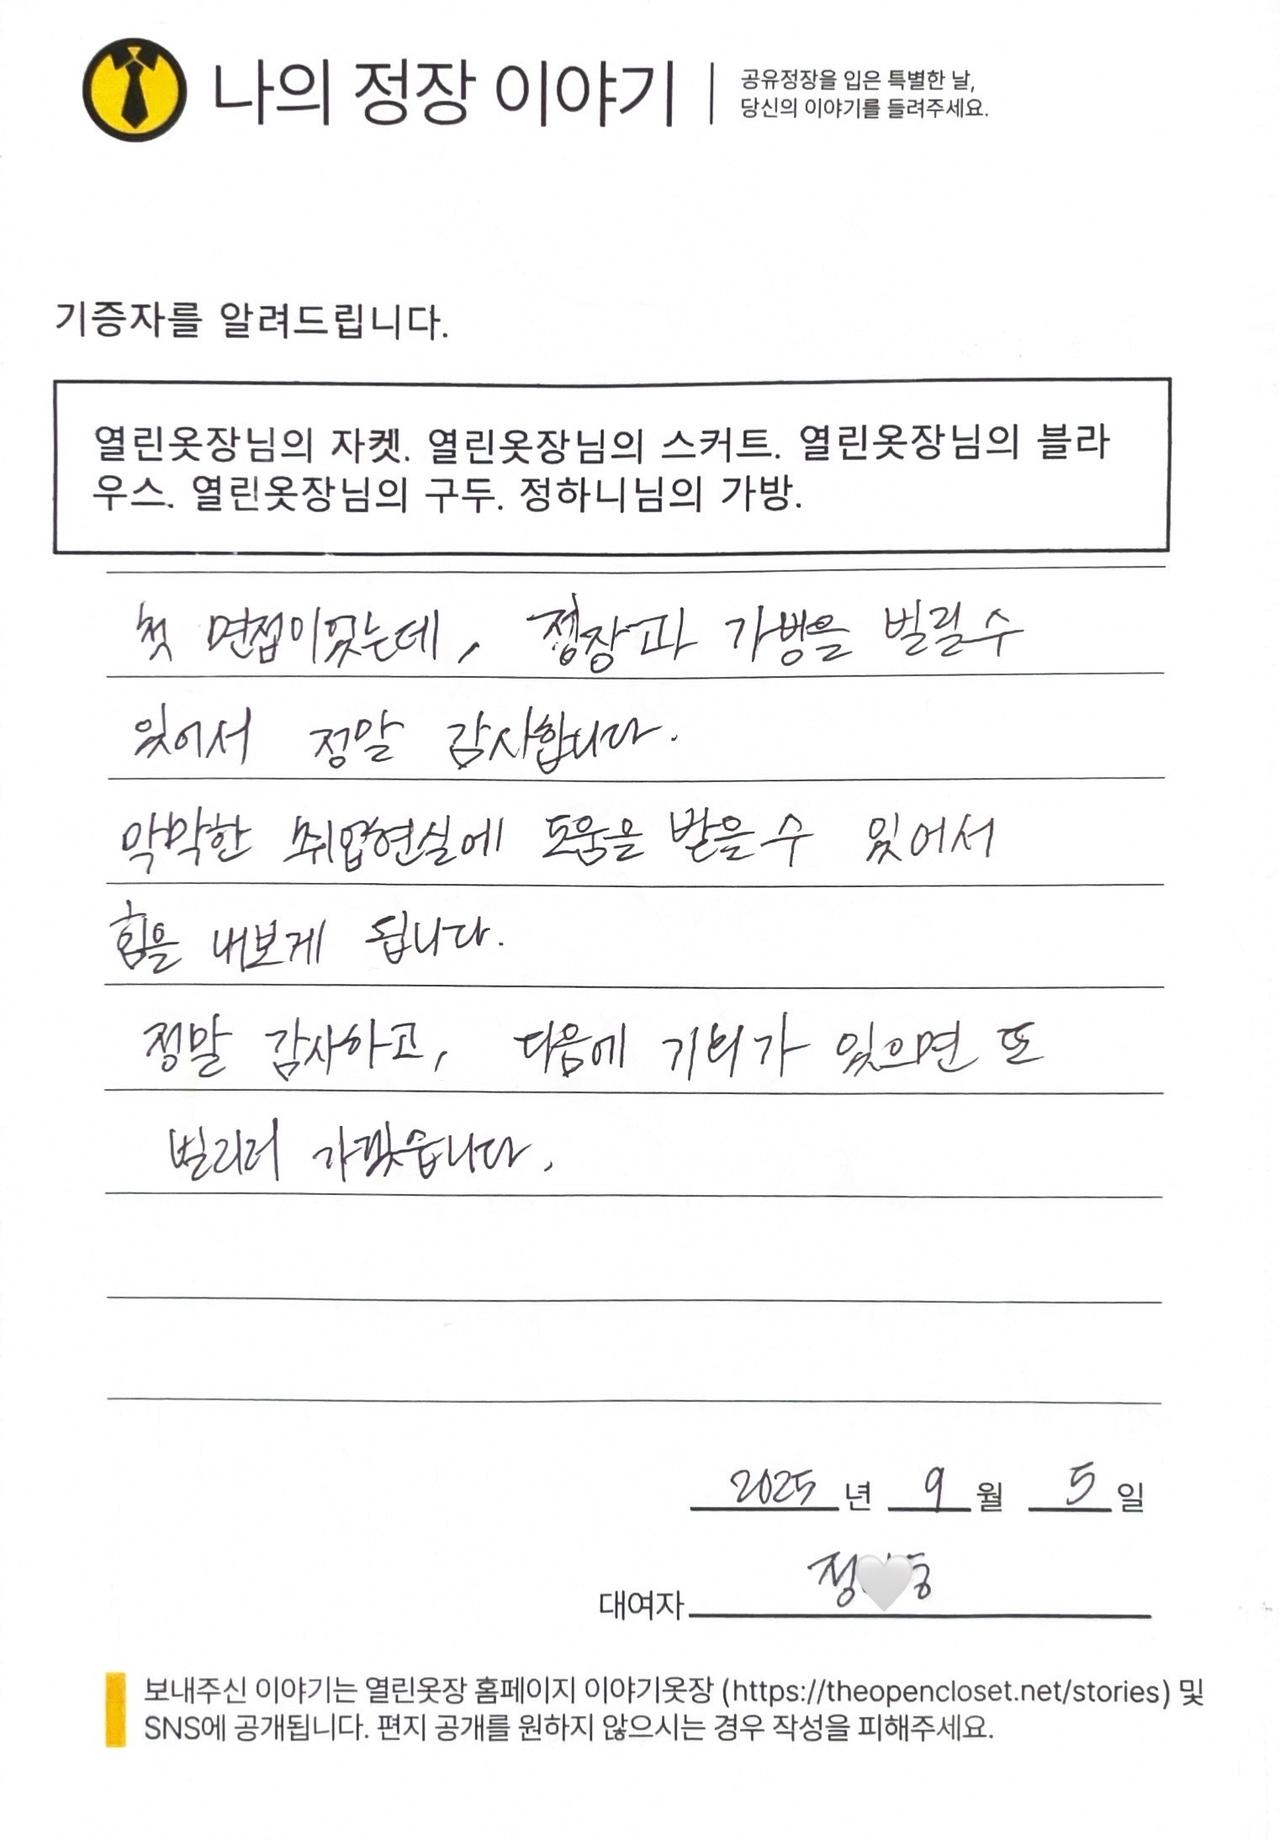 나의 정장 이야기
공유정장을 입은 특별한 날,
당신의 이야기를 들려주세요.
기증자를 알려드립니다.
열린옷장님의 자켓. 열린옷장님의 스커트. 열린옷장님의 블라
우스. 열린옷장님의 구두. 정하니님의 가방.
첫 면접이었는데, 정장과 가방을 빌릴 수
있어서 정말 감사합니다.
막막한 취업현실에 도움을 받을 수 있어서
힘을 내보게 됩니다.
정말 감사하고, 다음에 기회가 있으면 또
빌리러 가겠습니다.
2025 년 9 월 5 일
대여자 정
보내주신 이야기는 열린옷장 홈페이지 이야기옷장 (https://theopencloset.net/stories) 및
SNS에 공개됩니다. 편지 공개를 원하지 않으시는 경우 작성을 피해주세요.